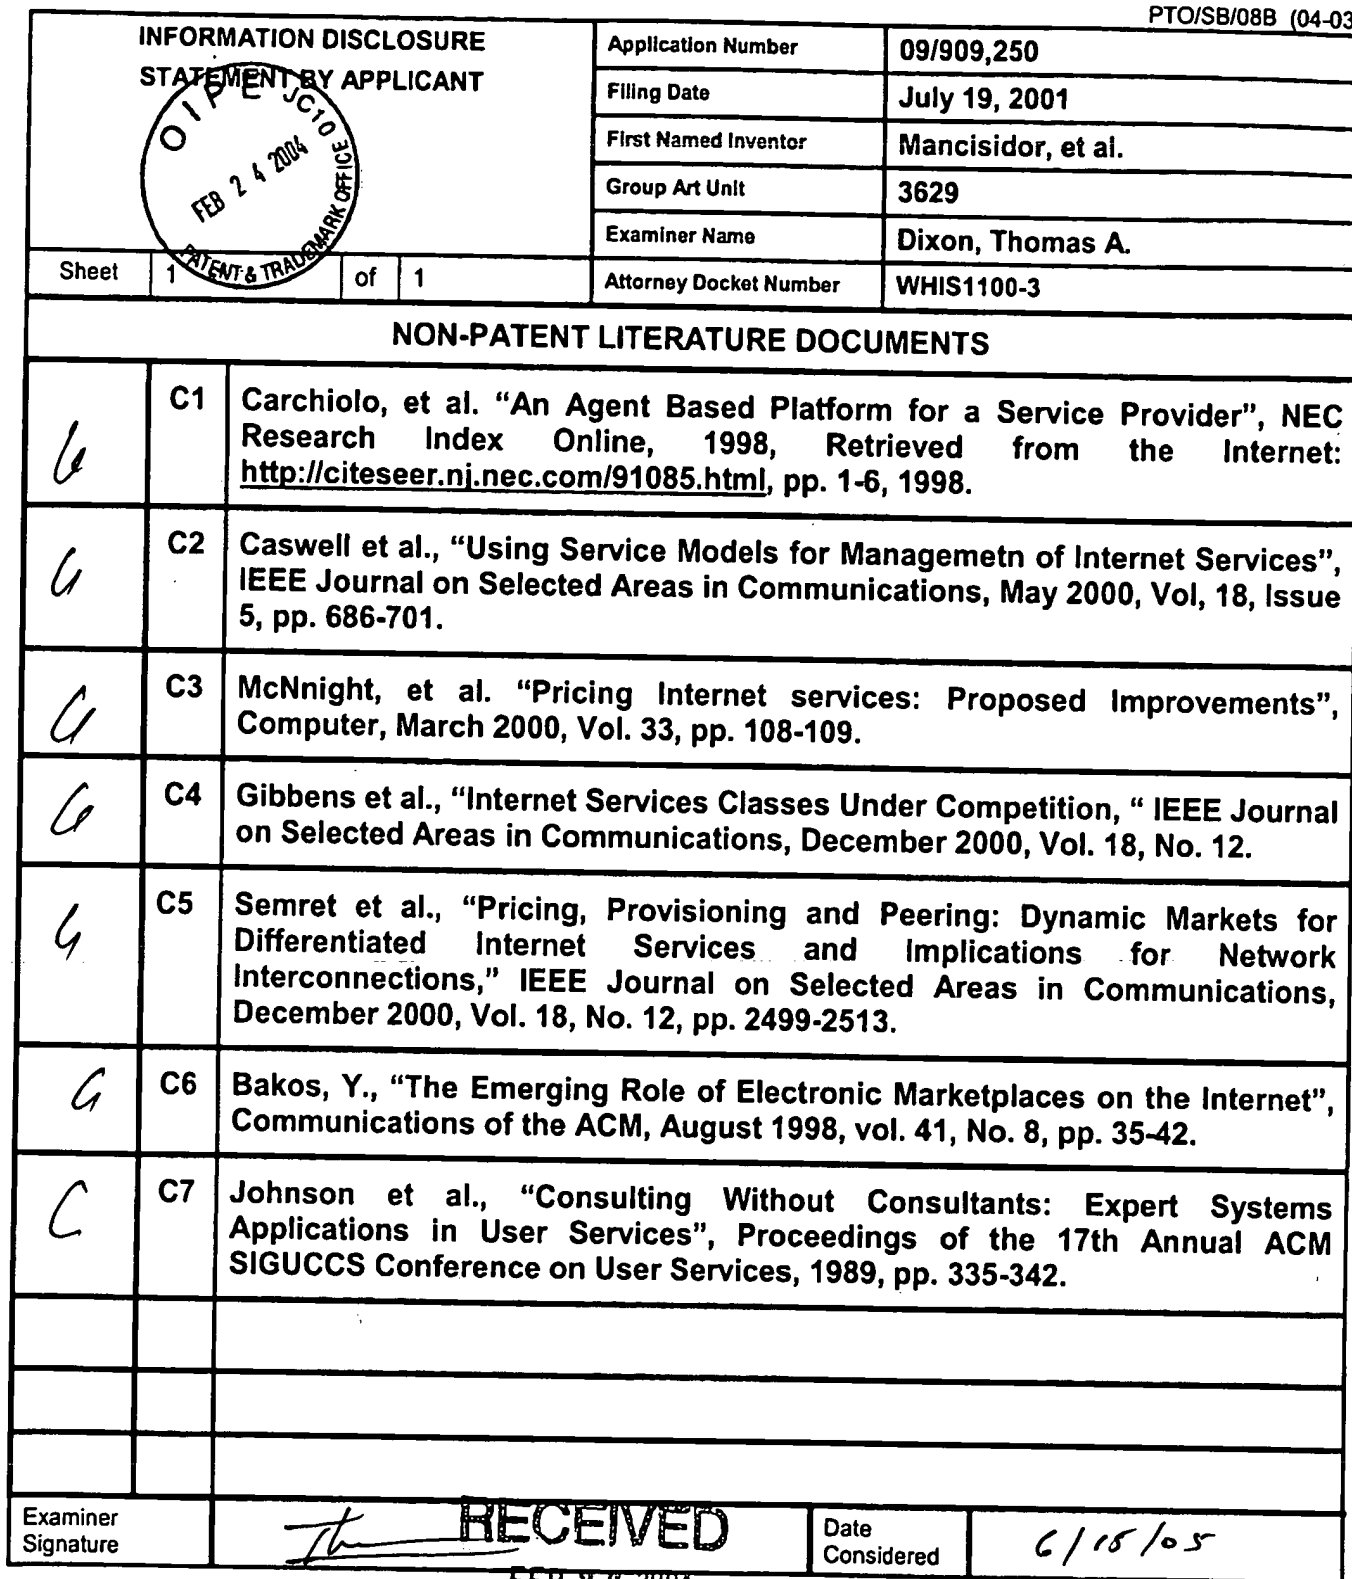 PTO/SB/08B (04-03
INFORMATION DISCLOSURE
STATEMENT BY APPLICANT
OIPE JC10
FEB 24 2004
PATENT & TRADEMARK OFFICE
Application Number 09/909,250
Filing Date July 19, 2001
First Named Inventor Mancisidor, et al.
Group Art Unit 3629
Examiner Name Dixon, Thomas A.
Sheet 1 of 1 Attorney Docket Number WHIS1100-3
NON-PATENT LITERATURE DOCUMENTS
C1 Carchiolo, et al. “An Agent Based Platform for a Service Provider”, NEC
Research Index Online, 1998, Retrieved from the Internet:
http://citeseer.nj.nec.com/91085.html, pp. 1-6, 1998.
C2 Caswell et al., “Using Service Models for Managemetn of Internet Services”,
IEEE Journal on Selected Areas in Communications, May 2000, Vol, 18, Issue
5, pp. 686-701.
C3 McNnight, et al. “Pricing Internet services: Proposed Improvements”,
Computer, March 2000, Vol. 33, pp. 108-109.
C4 Gibbens et al., “Internet Services Classes Under Competition, “ IEEE Journal
on Selected Areas in Communications, December 2000, Vol. 18, No. 12.
C5 Semret et al., “Pricing, Provisioning and Peering: Dynamic Markets for
Differentiated Internet Services and Implications for Network
Interconnections,” IEEE Journal on Selected Areas in Communications,
December 2000, Vol. 18, No. 12, pp. 2499-2513.
C6 Bakos, Y., “The Emerging Role of Electronic Marketplaces on the Internet”,
Communications of the ACM, August 1998, vol. 41, No. 8, pp. 35-42.
C7 Johnson et al., “Consulting Without Consultants: Expert Systems
Applications in User Services”, Proceedings of the 17th Annual ACM
SIGUCCS Conference on User Services, 1989, pp. 335-342.
Examiner
Signature
RECEIVED
Date
Considered
6/15/05